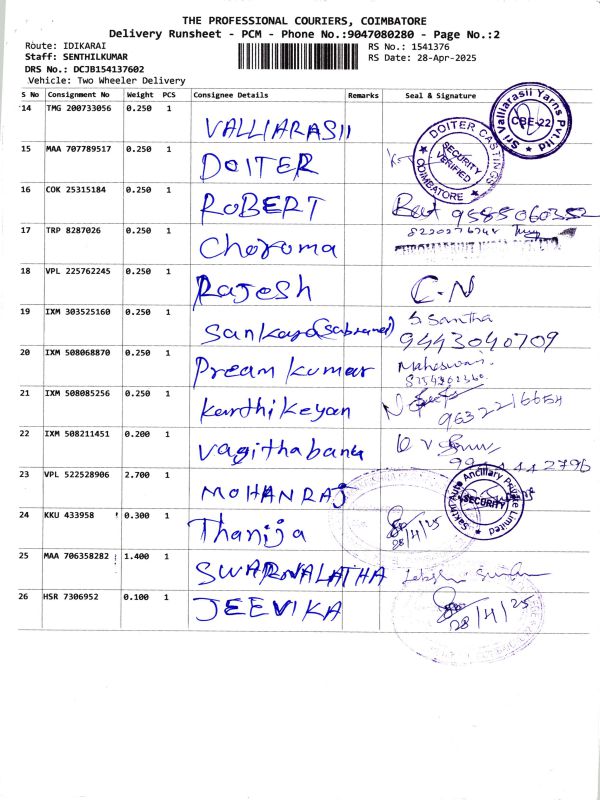 THE PROFESSIONAL COURIERS, COIMBATORE
Delivery Runsheet - PCM - Phone No.:9047080280 - Page No.:2
Route: IDIKARAI
RS No.: 1541376
Staff: SENTHILKUMAR
RS Date: 28-Apr-2025
DRS No.: DCJB154137602
Vehicle: Two Wheeler Delivery
S No Consignment No Weight PCS Consignee Details Remarks Seal & Signature
14 TMG 200733056 0.250 1 VALLIARASII
Sri Valliarasii Yarns Pvt. Ltd
CBE-22
15 MAA 707789517 0.250 1 DOITER
DOITER CASTINGS
SECURITY VERIFIED
COIMBATORE
16 COK 25315184 0.250 1 ROBERT 9585060352
17 TRP 8287026 0.250 1 Choroma
18 VPL 225762245 0.250 1 Rajesh C.N
19 IXM 303525160 0.250 1 Sankara (Sabramei) S. Santha
9443040709
20 IXM 508068870 0.250 1 Pream kumar Maheswari
21 IXM 508085256 0.250 1 karthikeyan 9632216654
22 IXM 508211451 0.200 1 vagithabanu
23 VPL 522528906 2.700 1 MOHANRAJ
Sakthi Auto Ancillary Private Limited
SECURITY
24 KKU 433958 0.300 1 Thanija 28/4/25
25 MAA 706358282 1.400 1 SWARNALATHA
26 HSR 7306952 0.100 1 JEEVIKA 28/4/25